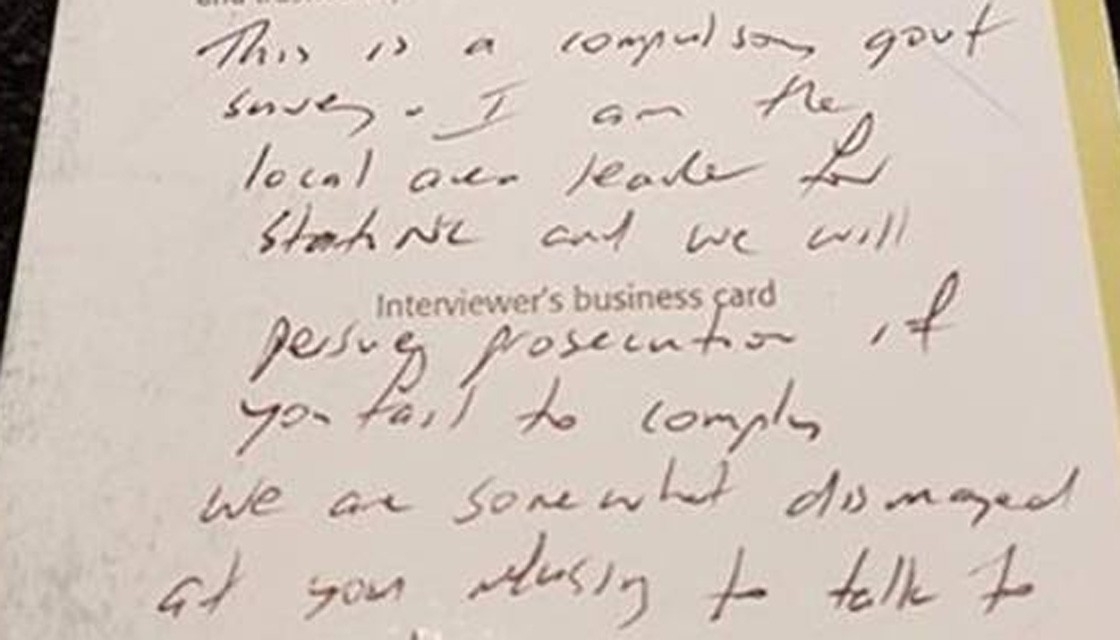 This is a compulsory govt
survey. I am the
local area leader for
Stats NZ and we will
Interviewer's business card
persuey prosecution if
you fail to comply
we are somewhat dismayed
at your refusing to talk to